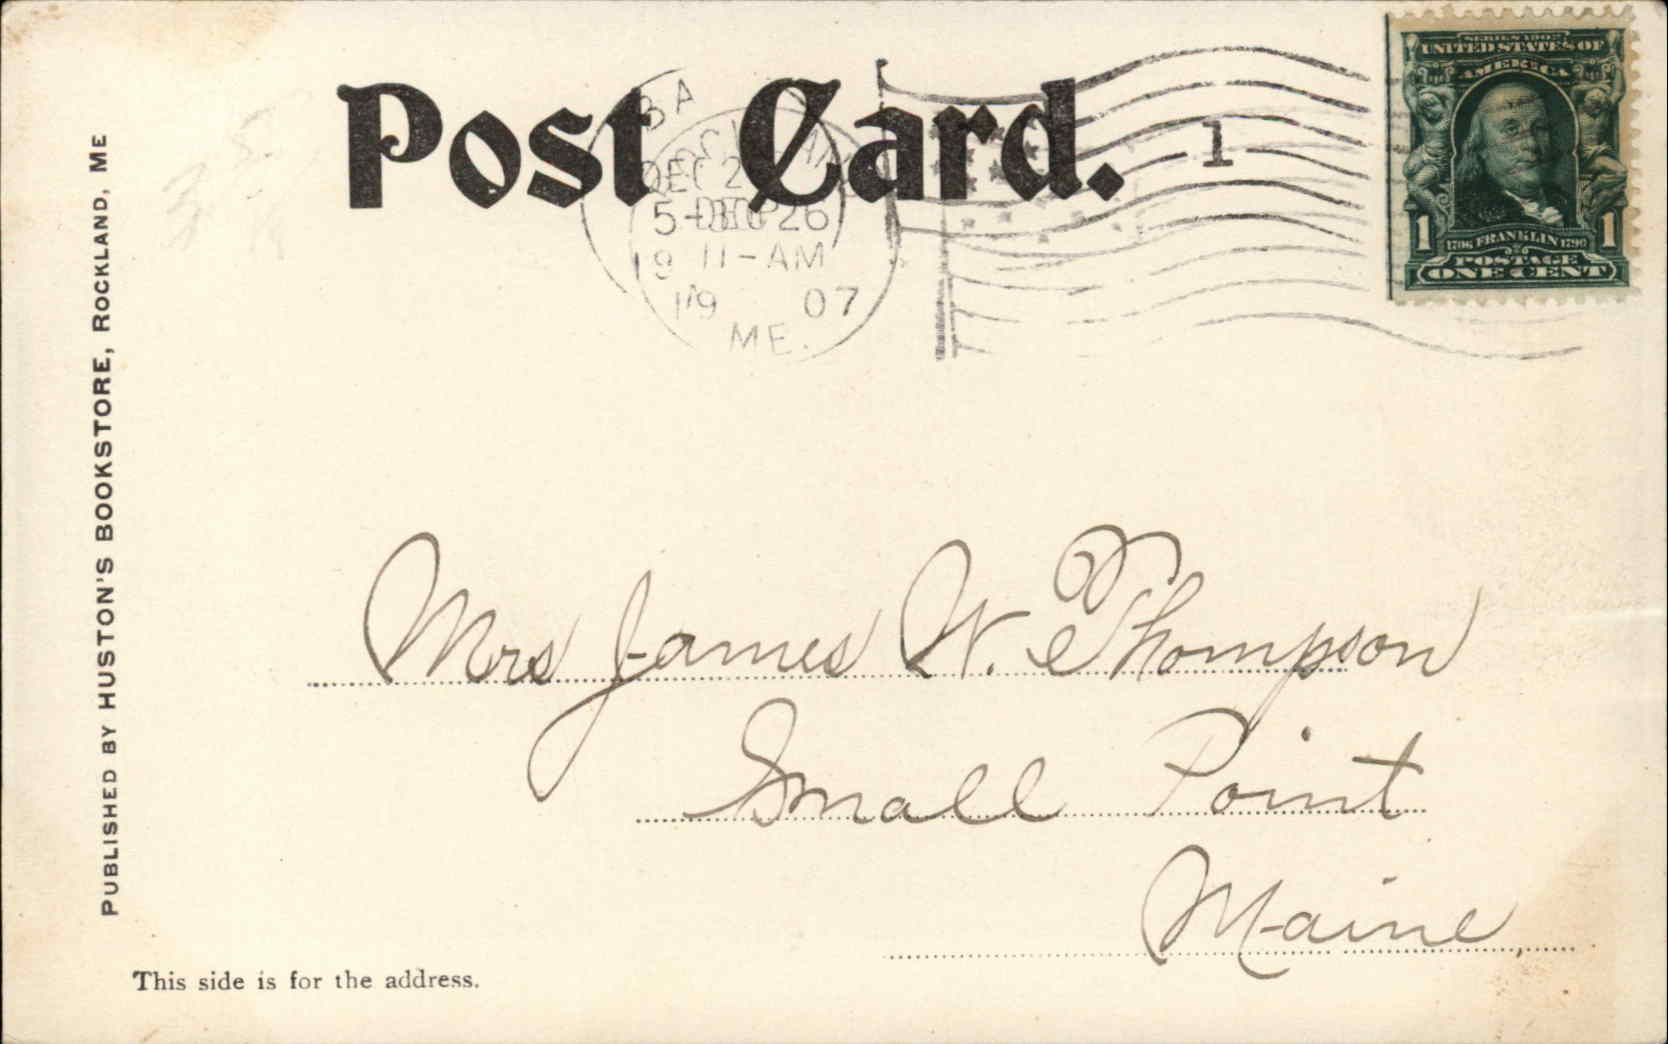 Post Card.
BA
DEC 2
5-
DEC 26
11-AM
19
19 07
ME.
1
SERIES 1902
UNITED STATES OF
AMERICA
1 1706 FRANKLIN 1790 1
POSTAGE
ONE CENT
PUBLISHED BY HUSTON'S BOOKSTORE, ROCKLAND, ME
Mrs James W. Thompson
Small Point
Maine,
This side is for the address.